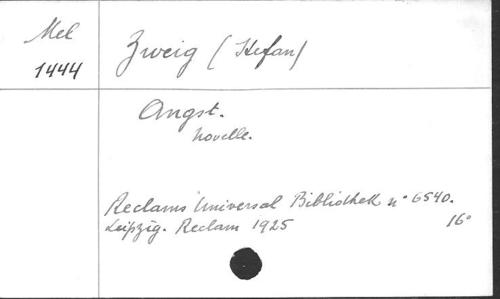 Mel
1444
Zweig (Stefan)
Angst.
Novelle.
Reclams Universal Bibliothek n° 6540.
Leipzig. Reclam 1925
16°